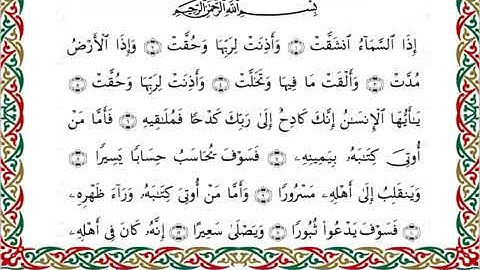 بِسْمِ ٱللَّهِ ٱلرَّحْمَٰنِ ٱلرَّحِيمِ
إِذَا ٱلسَّمَآءُ ٱنشَقَّتْ ١ وَأَذِنَتْ لِرَبِّهَا وَحُقَّتْ ٢ وَإِذَا ٱلْأَرْضُ
مُدَّتْ ٣ وَأَلْقَتْ مَا فِيهَا وَتَخَلَّتْ ٤ وَأَذِنَتْ لِرَبِّهَا وَحُقَّتْ ٥
يَٰٓأَيُّهَا ٱلْإِنسَٰنُ إِنَّكَ كَادِحٌ إِلَىٰ رَبِّكَ كَدْحًا فَمُلَٰقِيهِ ٦ فَأَمَّا مَنْ
أُوتِىَ كِتَٰبَهُۥ بِيَمِينِهِۦ ٧ فَسَوْفَ يُحَاسَبُ حِسَابًا يَسِيرًا ٨
وَيَنقَلِبُ إِلَىٰٓ أَهْلِهِۦ مَسْرُورًا ٩ وَأَمَّا مَنْ أُوتِىَ كِتَٰبَهُۥ وَرَآءَ ظَهْرِهِۦ
١٠ فَسَوْفَ يَدْعُوا۟ ثُبُورًا ١١ وَيَصْلَىٰ سَعِيرًا ١٢ إِنَّهُۥ كَانَ فِىٓ أَهْلِهِۦ